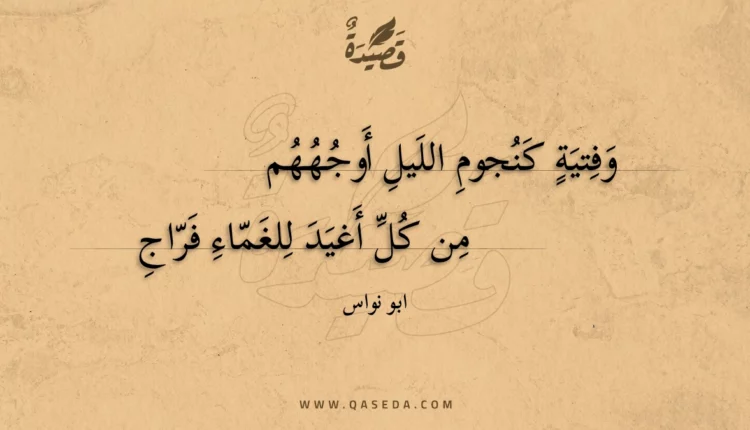 قَصِيدَةٌ
وَفِتيَةٍ كَنُجومِ اللَيلِ أَوجُهُهُم
مِن كُلِّ أَغيَدَ لِلغَمّاءِ فَرّاجِ
ابو نواس
WWW.QASEDA.COM